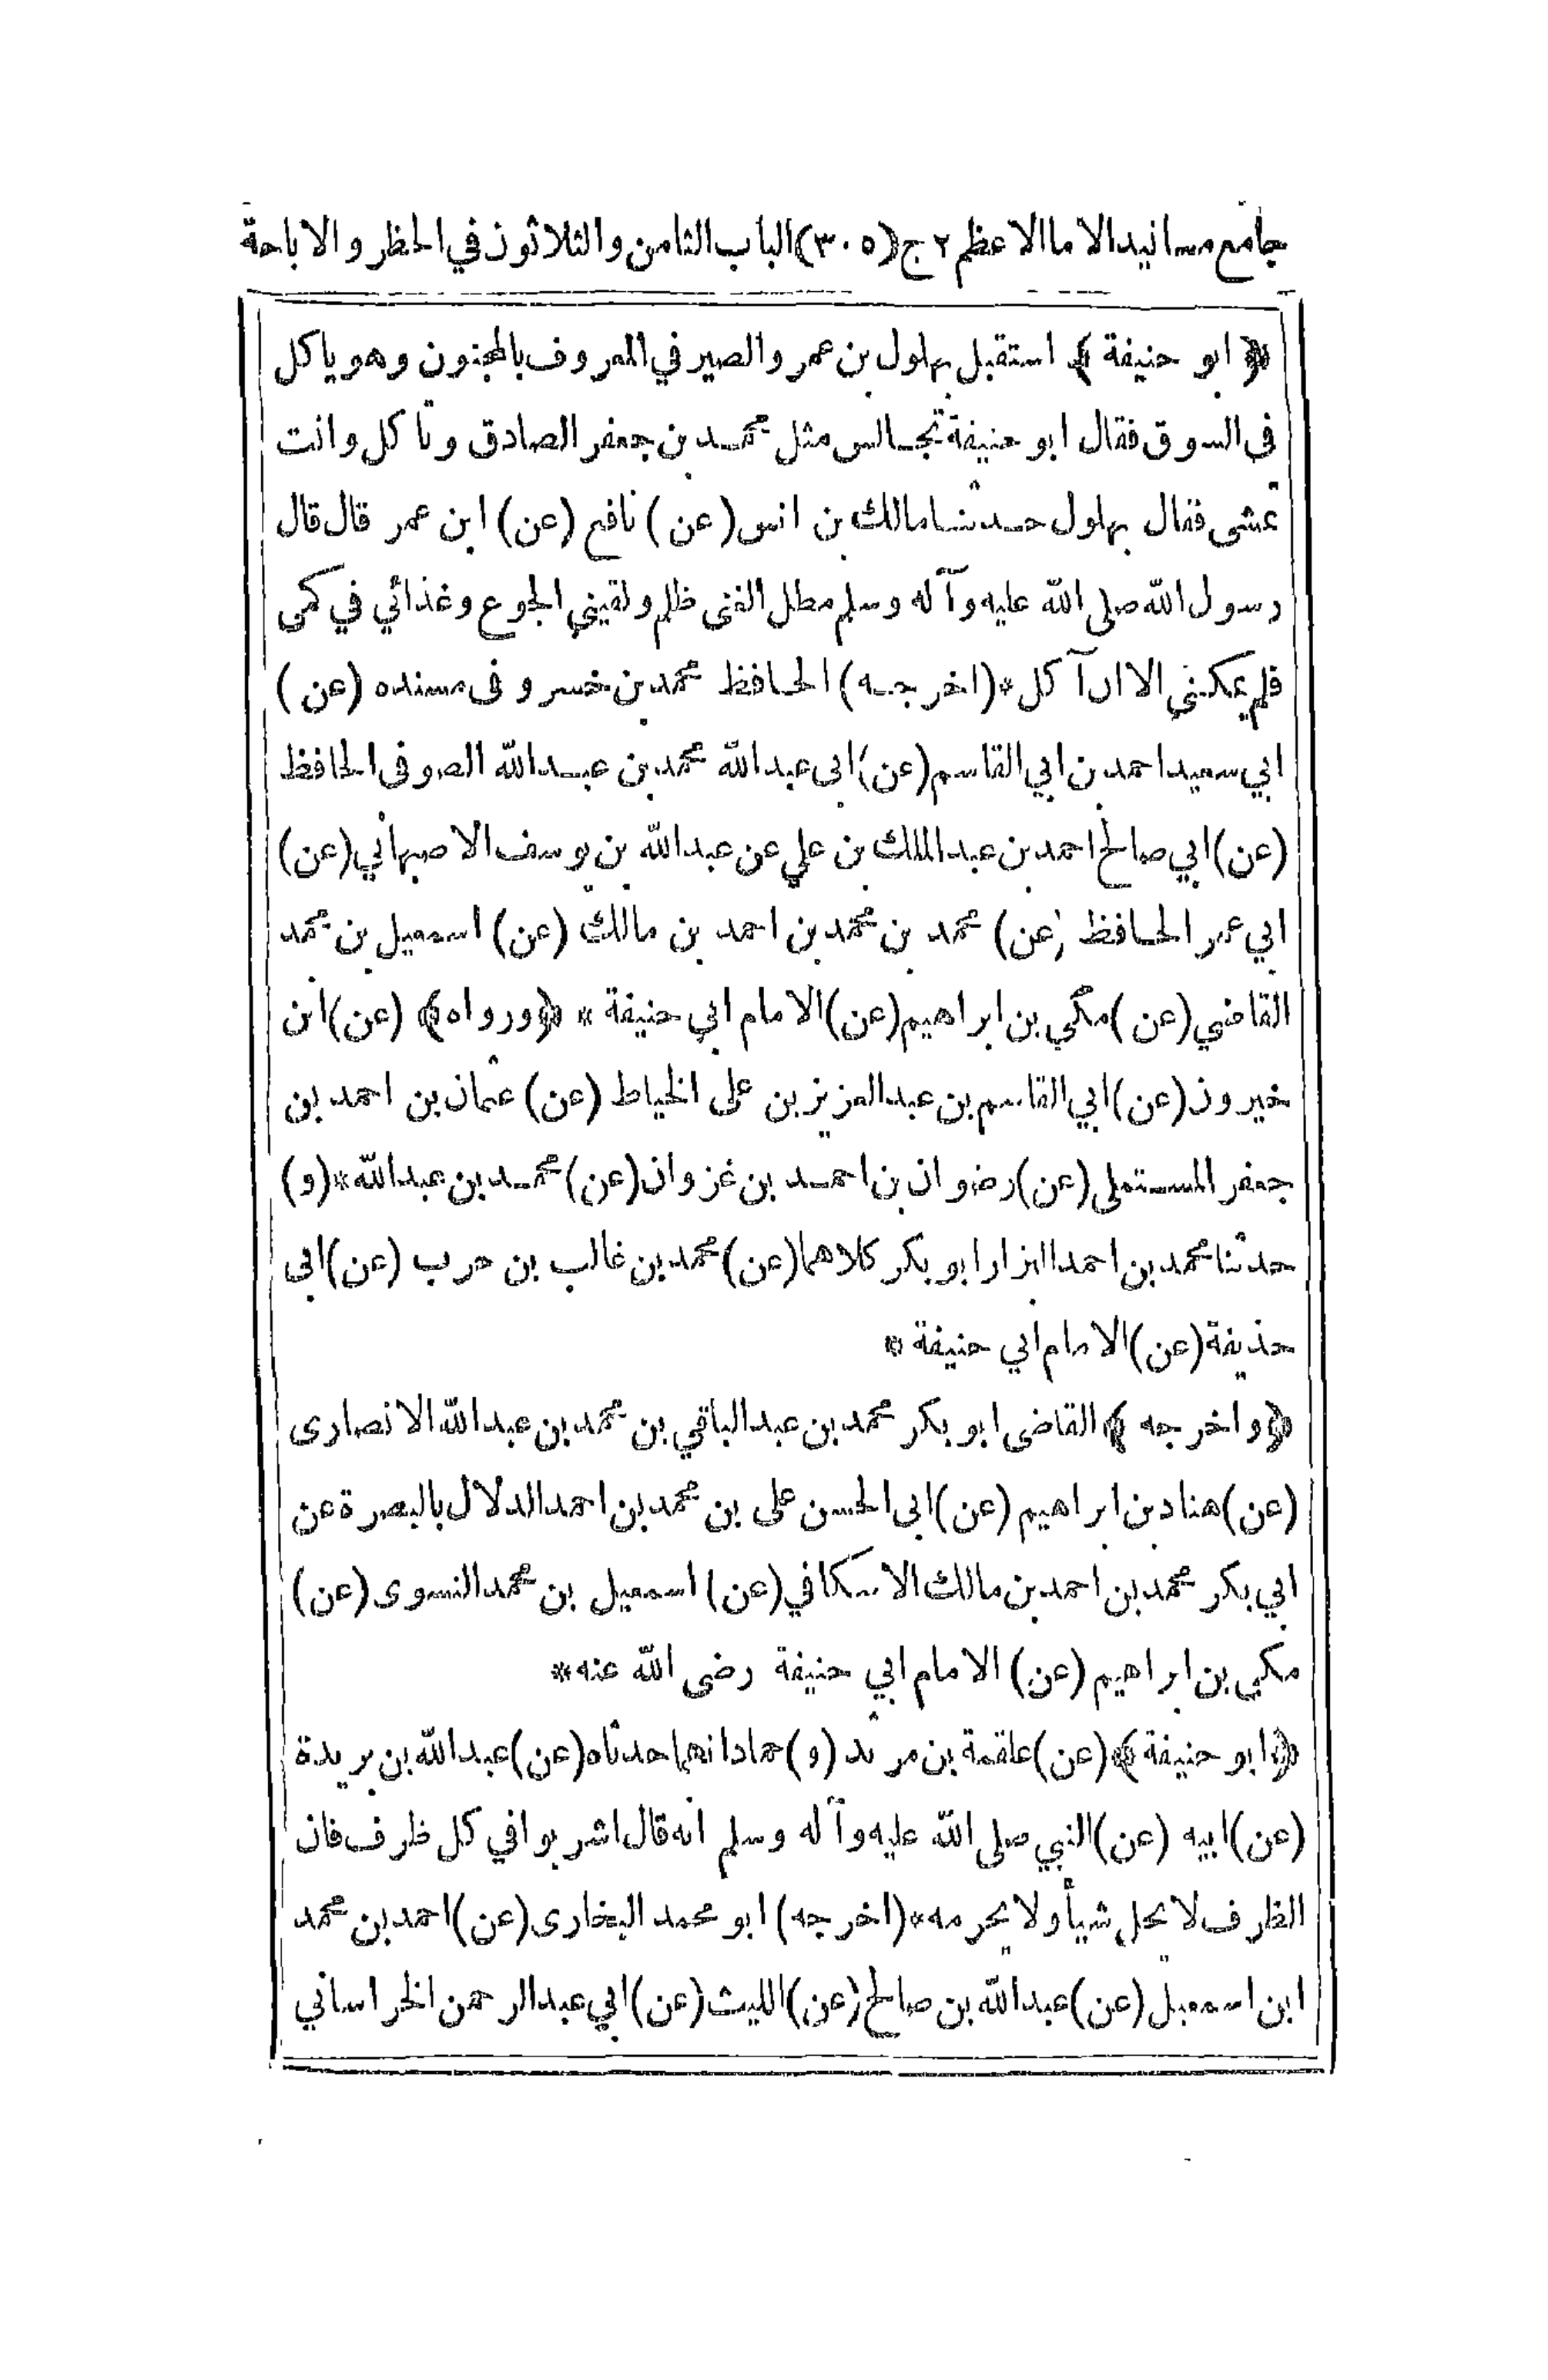 جامع مسانيد الاماالاعظم ٢ ج (٣٠٥) الباب الثامن والثلاثون في الحظر والاباحة
﴿ ابو حنيفة ﴾ استقبل بهلول بن عمرو الصيرفي المعروف بالمجنون وهو ياكل
فى السوق فقال ابو حنيفة تجالس مثل محمد بن جعفر الصادق وتأكل وانت
تمشى فقال بهلول حدثنا مالك بن انس (عن) نافع (عن) ابن عمر قال قال
رسول الله صلى الله عليه وآله وسلم مطل الغنى ظلم ولقيني الجوع وغذائي في كمى
فلم يمكنني الا ان آكل * (اخرجه) الحافظ محمد بن خسرو فى مسنده (عن)
ابي سعيد احمد بن ابي القاسم (عن) ابى عبد الله محمد بن عبد الله الصوفى الحافظ
(عن) ابي صالح احمد بن عبد الملك بن علي عن عبد الله بن يوسف الاصبهاني (عن)
ابي عمر الحافظ (عن) محمد بن محمد بن احمد بن مالك (عن) اسمعيل بن محمد
القاضي (عن) مكي بن ابراهيم (عن) الامام ابي حنيفة * ﴿ورواه﴾ (عن) ابن
خيرون (عن) ابي القاسم بن عبد العزيز بن على الخياط (عن) عثمان بن احمد بن
جعفر المستملى (عن) رضوان بن احمد بن غزوان (عن) محمد بن عبد الله * (و)
حدثنا محمد بن احمد البزار ابو بكر كلاهما (عن) محمد بن غالب بن حرب (عن) ابى
حذيفة (عن) الامام ابي حنيفة *
﴿واخرجه﴾ القاضى ابو بكر محمد بن عبد الباقي بن محمد بن عبد الله الانصارى
(عن) هناد بن ابراهيم (عن) ابى الحسن على بن محمد بن احمد الدلال بالبصرة عن
ابي بكر محمد بن احمد بن مالك الاسكافي (عن) اسمعيل بن محمد النسوى (عن)
مكي بن ابراهيم (عن) الامام ابي حنيفة رضى الله عنه *
﴿ابو حنيفة﴾ (عن) علقمة بن مرثد (و) حماد انهما حدثاه (عن) عبد الله بن بريدة
(عن) ابيه (عن) النبي صلى الله عليه وآله وسلم انه قال اشربوا في كل ظرف فان
الظرف لا يحل شيأ ولا يحرمه * (اخرجه) ابو محمد البخارى (عن) احمد بن محمد
ابن اسمعيل (عن) عبد الله بن صالح (عن) الليث (عن) ابي عبد الرحمن الخراساني